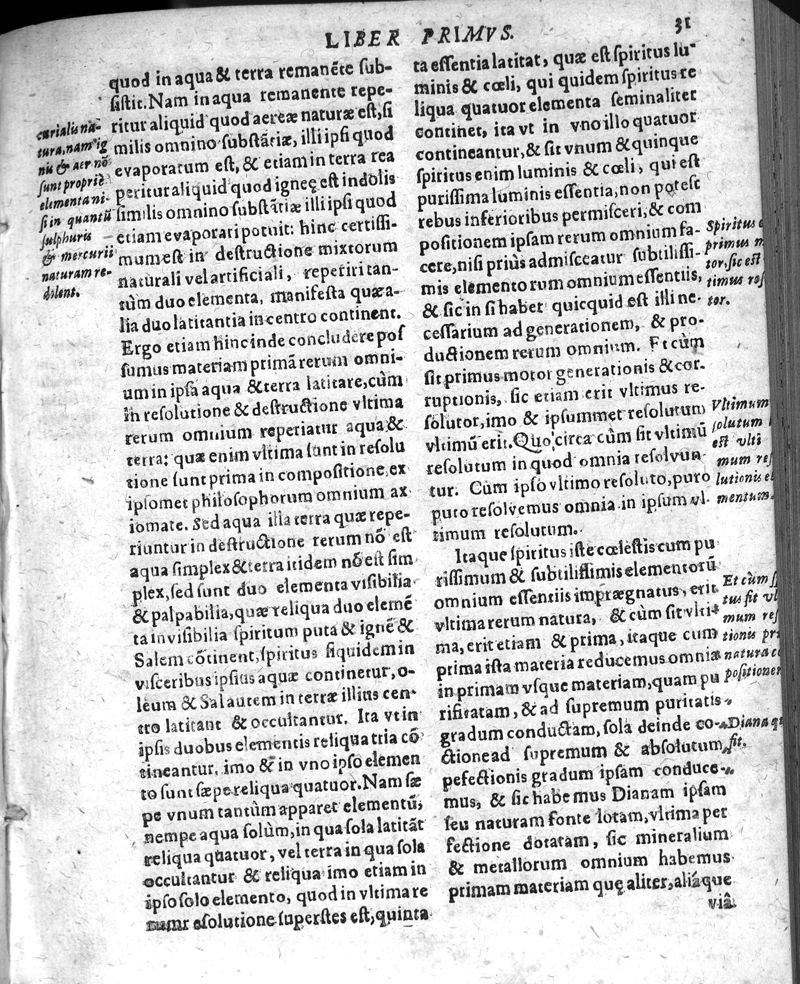 LIBER PRIMVS. 31
quod in aqua & terra remanẽte sub-
sistit. Nam in aqua remanente repe-
ritur aliquid quod aereæ naturæ est, si
milis omnino substãtiæ, illi ipsi quod
evaporatum est, & etiam in terra rea
peritur aliquid quod igneę est indolis
similis omnino substãtiæ illi ipsi quod
etiam evaporati potuit: hinc certissi-
mum est in destructione mixtorum
naturali vel artificiali, repetiri tan-
tùm duo elementa, manifesta quæ a-
lia duo latitantia in centro continent.
Ergo etiam hinc inde concludere pos
sumus materiam primã rerum omni-
um in ipsa aqua & terra latitare, cùm
in resolutione & destructione vltima
rerum omnium reperiatur aqua &
terra: quæ enim vltima sunt in resolu
tione sunt prima in compositione, ex
ipsomet philosophorum omnium ax
iomate. Sed aqua illa terra quæ repe-
riuntur in destructione rerum nõ est
aqua simplex & terra itidem nõ est sim
plex, sed sunt duo elementa visibilia
& palpabilia, quæ reliqua duo elemẽ
ta invisibilia spiritum puta & ignẽ &
Salem cõtinent, spiritus siquidem in
visceribus ipsius aquæ continetur, o-
leum & Sal autem in terræ illius cen-
tro latitant & occultantur. Ita vt in
ipsis duobus elementis reliqua tria cõ
tineantur, imo & in vno ipso elemen
to sunt sæpe reliqua quatuor. Nam sæ
pe vnum tantùm apparet elementũ;
nempe aqua solùm, in qua sola latitãt
reliqua quatuor, vel terra in qua sola
occultantur & reliqua imo etiam in
ipso solo elemento, quod in vltima re
esolutione superstes est, quinta
carialu na-
tura, nam ig
nis & aer nõ
sunt propriè
elementa ni-
si in quantũ
sulphuris
& mercurii
naturam re-
dolent.
ta essentia latitat, quæ est spiritus lu-
minis & cœli, qui quidem spiritus re
liqua quatuor elementa seminaliter
continet, ita vt in vno illo quatuor
contineantur, & sit vnum & quinque
spiritus enim luminis & cœli, qui est
purissima luminis essentia, non potest
rebus inferioribus permisceri, & com
positionem ipsam rerum omnium fa-
cere, nisi priùs admisceatur subtilissi-
mis elementorum omnium essentiis,
& sic in si habet quicquid est illi ne-
cessarium ad generationem, & pro-
ductionem rerum omnium. Et cùm
sit primus motor generationis & cor-
ruptionis, sic etiam erit vltimus re-
solutor, imo & ipsummet resolutum
vltimũ erit. Quocirca cùm sit vltimũ
resolutum in quod omnia resolvun-
tur. Cùm ipso vltimo resoluto, puro
puto resolvemus omnia in ipsum vl-
timum resolutum.
Itaque spiritus iste cœlestis cum pu
rissimum & subtilissimis elementorũ
omnium essentiis imprægnatus, erit
vltima rerum natura, & cùm sit vlti-
ma, erit etiam & prima, itaque cum
prima ista materia reducemus omnia
in primam vsque materiam, quam pu
rificatam, & ad supremum puritatis
gradum conductam, sola deinde co-
ctione ad supremum & absolutum
pefectionis gradum ipsam conduce-
mus, & sic habemus Dianam ipsam
seu naturam fonte lotam, vltima per
fectione dotatam, sic mineralium
& metallorum omnium habemus
primam materiam quę aliter, aliáque
viâ
Spiritus
primus
tor, sic est
timus
tor.
Vltimum
solutum
est vlti
mum
lutionis
mentum.
Et cùm
tus sit
mum
tionis
natura
positionem
Diana
sit.